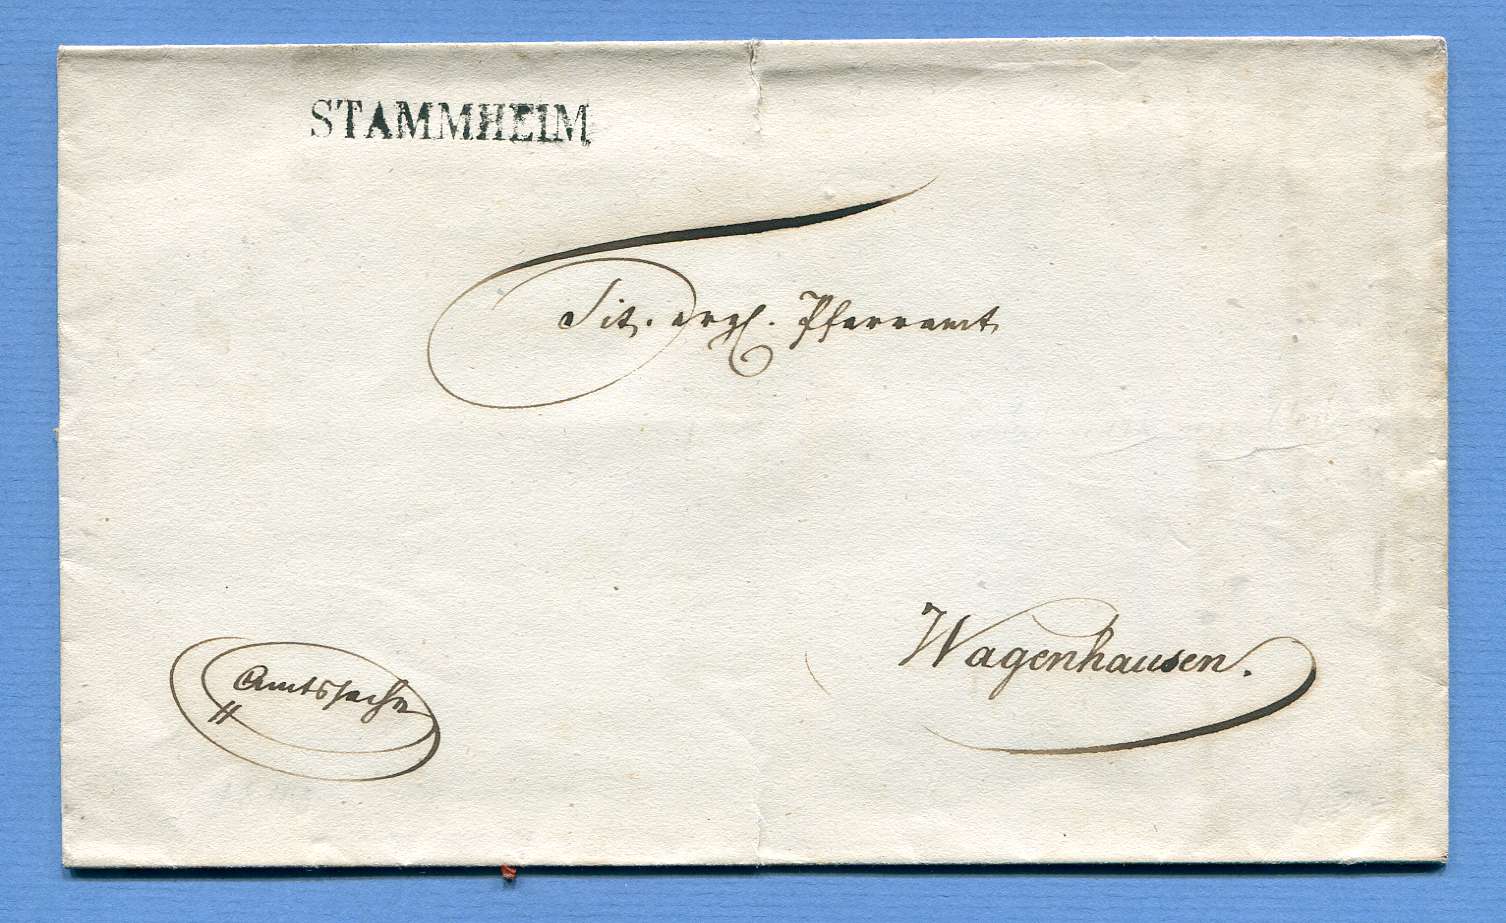 STAMMHEIM
Tit. evgl. Pfarramt
Wagenhausen.
Amtssache